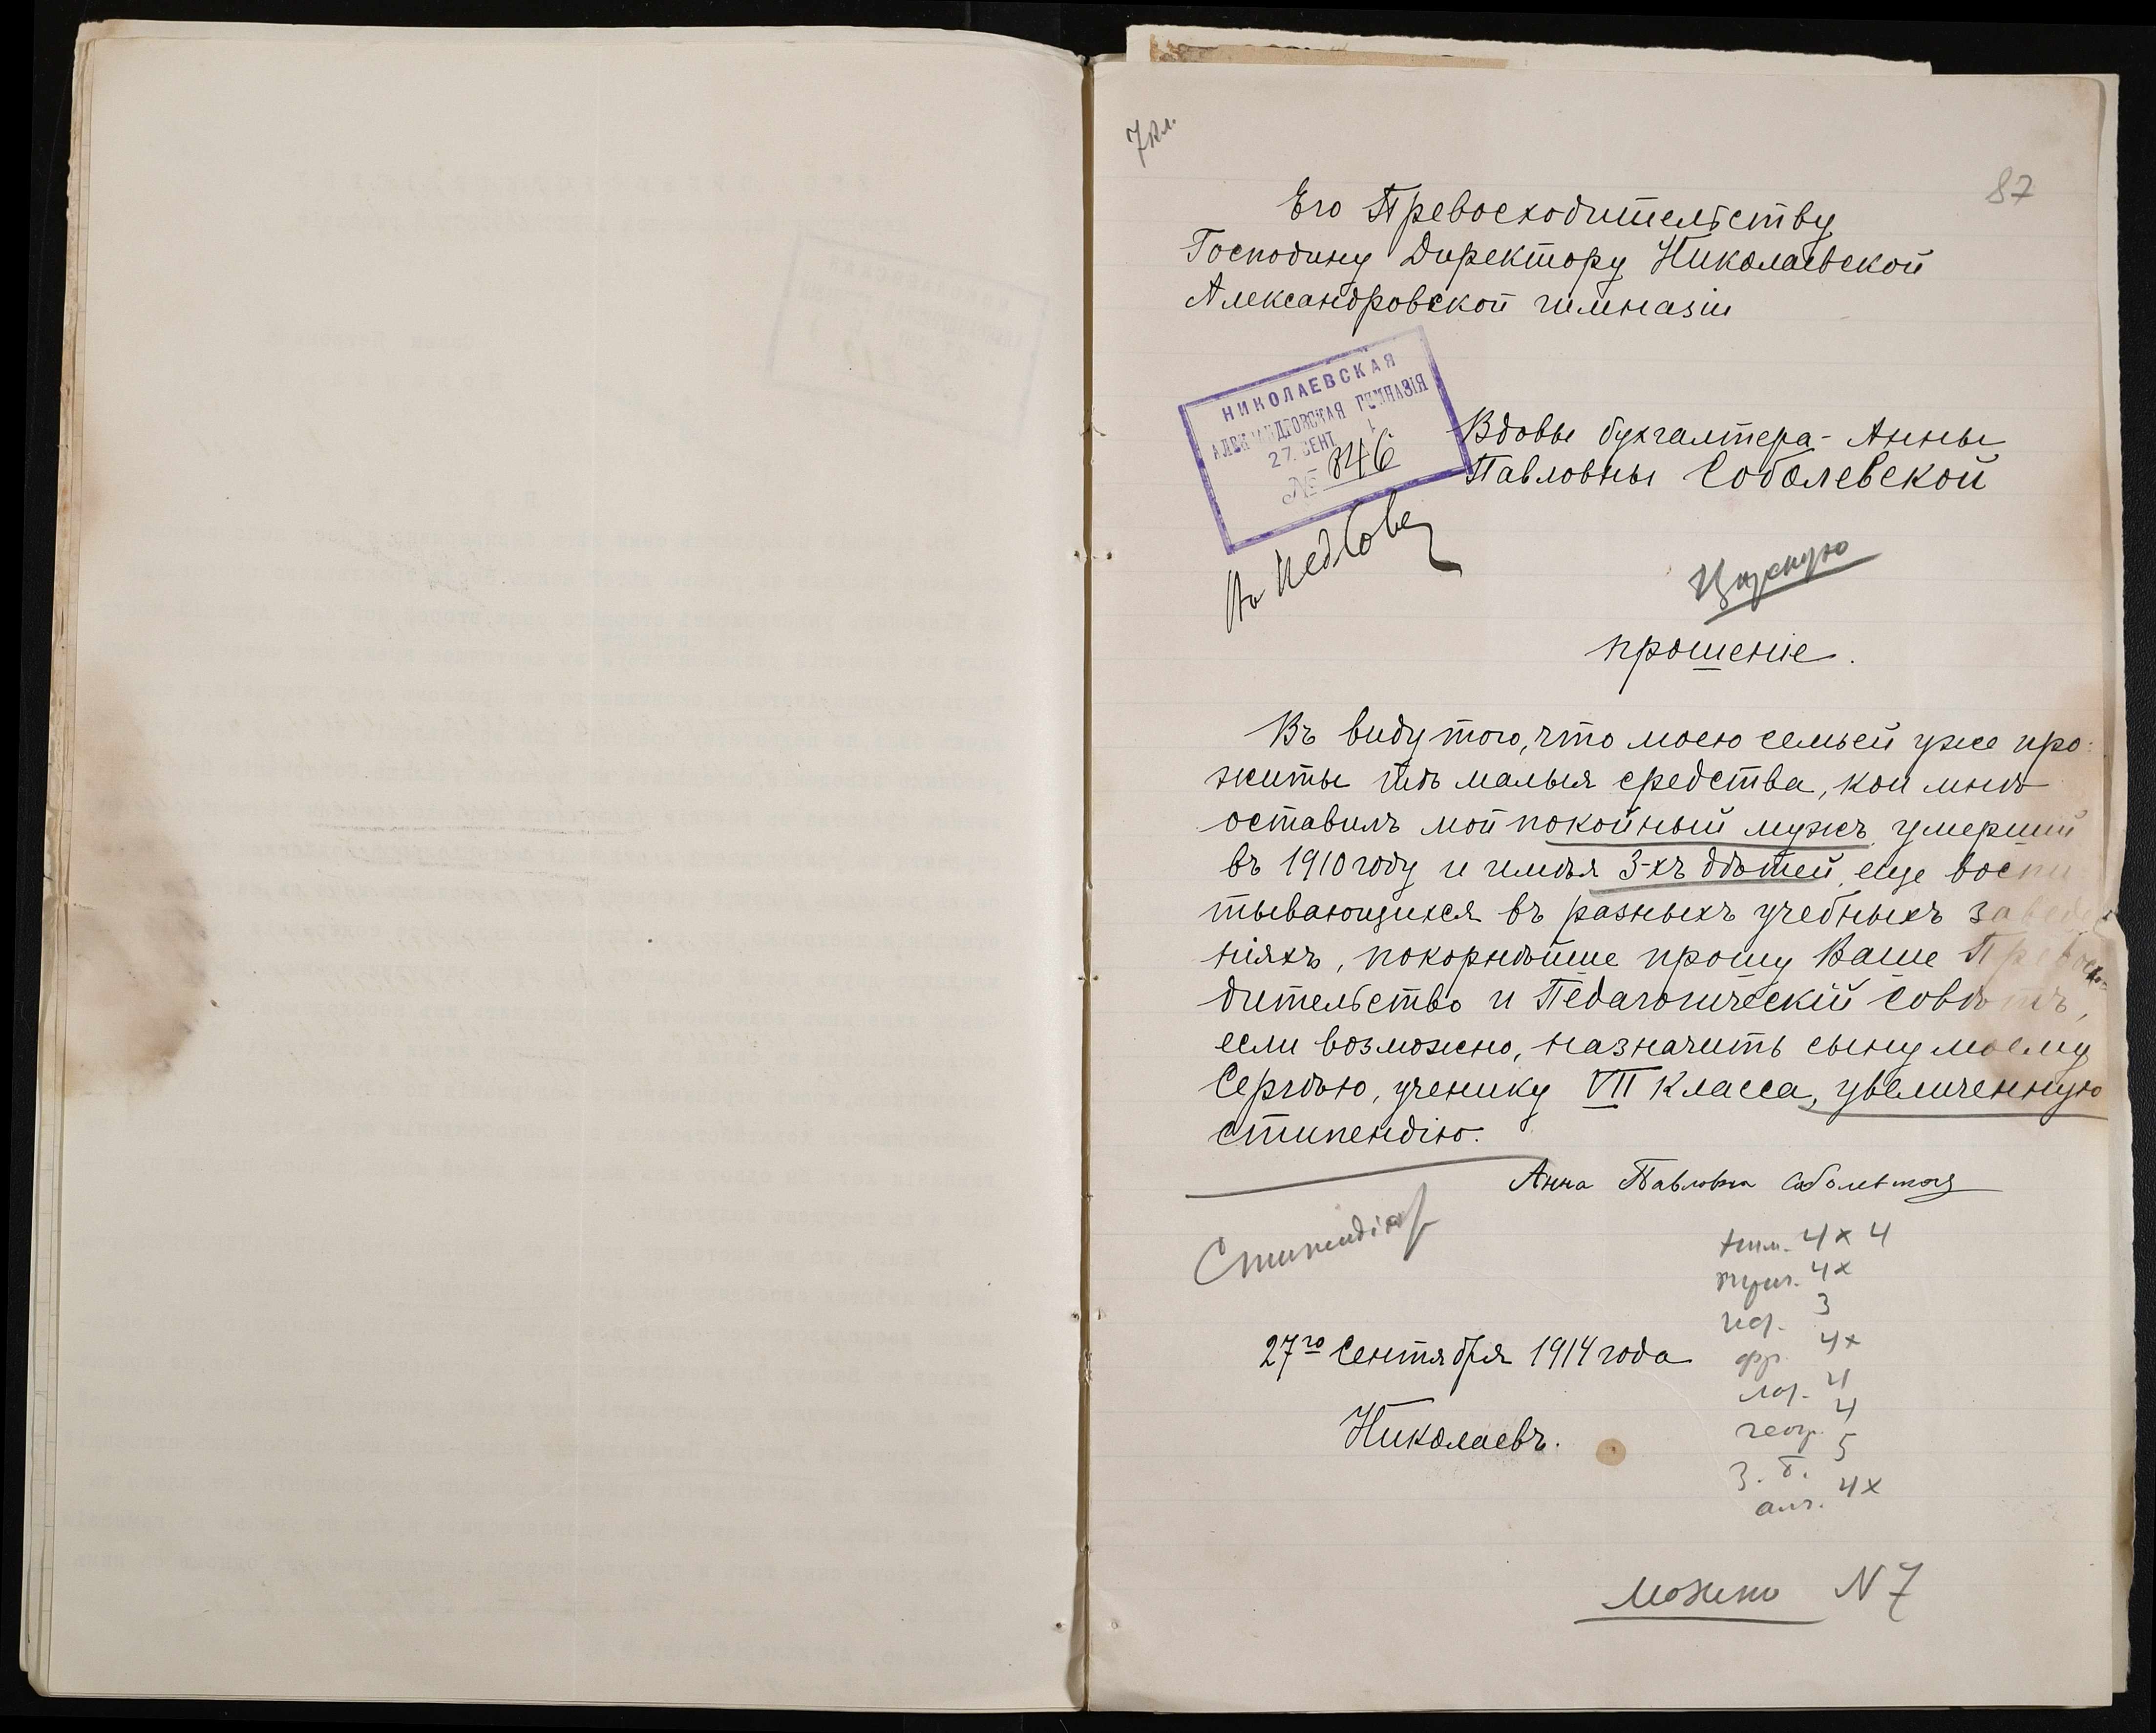 7 кл.
87
Его Превосходительству
Господину Директору Николаевской
Александровской гимназіи
НИКОЛАЕВСКАЯ
АЛЕКСАНДРОВСКАЯ ГИМНАЗІЯ
27. СЕНТ. 1
№ 846
Вдовы бухгалтера - Анны
Павловны Соболевской
Въ Пед Совѣ
прошеніе.
Въ виду того, что моею семьей уже про-
житы тѣ малыя средства, кои мнѣ
оставилъ мой покойный мужъ, умерший
въ 1910 году и имѣя 3-хъ дѣтей, еще воспи
тывающихся въ разныхъ учебныхъ заведе
ніяхъ, покорнѣйше прошу Ваше Превосхо-
дительство и Педагогическій Совѣтъ,
если возможно, назначить сыну моему
Сергѣю, ученику VII класса, увеличенную
стипендію.
Анна Павловна Соболевская
Стипендія
4 х 4
4х
3
фр. 4х
4
геогр. 4
З. Б. 5
алг. 4х
27го Сентября 1914 года
Николаевъ.
можно N 7